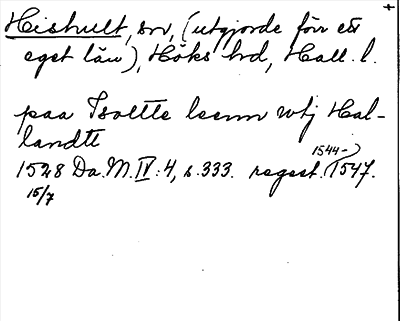 Hishult, sn, (utgjorde förr ett
eget län), Höks hd, Hall. l.
paa Tsoltte leenn wtj Hal-
landtt
1544-
1528 Da. M. IV: 4, s. 333. regest. 1547.
15/7